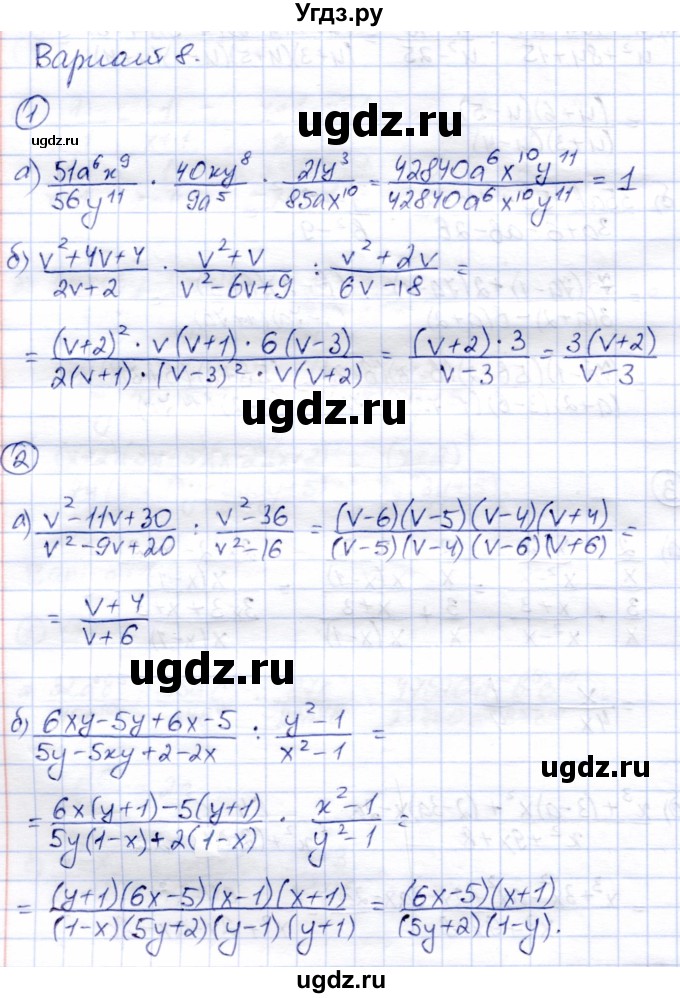 Угдз.ру
Вариант 8.
ugdz.ru
1
ugdz.ru
а) 51a⁶x⁹/56y¹¹ · 40xy⁸/9a⁵ · 21y³/85ax¹⁰ = 42840a⁶x¹⁰y¹¹/42840a⁶x¹⁰y¹¹ = 1
б) v²+4v+4/2v+2 · v²+v/v²-6v+9 : v²+2v/6v-18 =
= (v+2)²·v(v+1)·6(v-3)/2(v+1)·(v-3)²·v(v+2) = (v+2)·3/v-3 = 3(v+2)/v-3
ugdz.ru
2
а) v²-11v+30/v²-9v+20 : v²-36/v²-16 = (v-6)(v-5)(v-4)(v+4)/(v-5)(v-4)(v-6)(v+6) =
= v+4/v+6
ugdz.ru
б) 6xy-5y+6x-5/5y-5xy+2-2x : y²-1/x²-1 =
ugdz.ru
= 6x(y+1)-5(y+1)/5y(1-x)+2(1-x) · x²-1/y²-1 =
= (y+1)(6x-5)(x-1)(x+1)/(1-x)(5y+2)(y-1)(y+1) = (6x-5)(x+1)/(5y+2)(1-y).
ugdz.ru
ugdz.ru